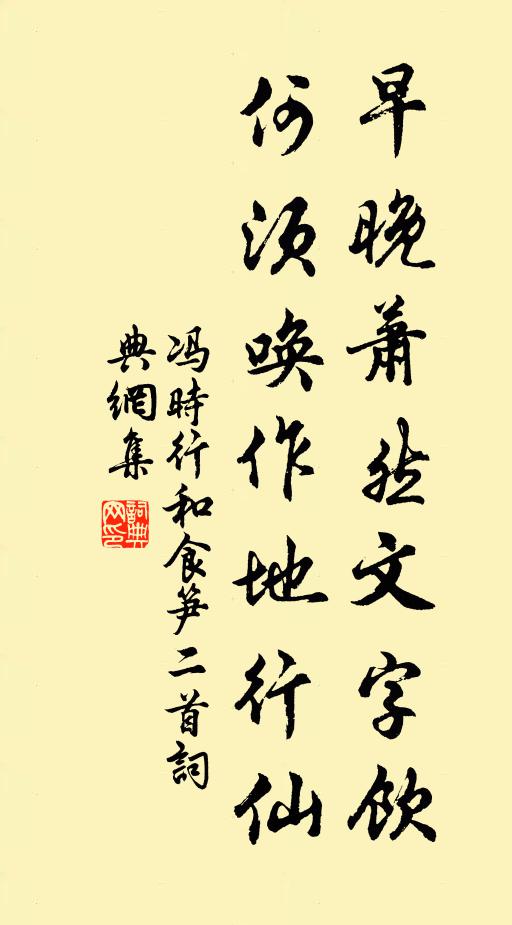 早晚蕭然文字飲
何須喚作地行仙
馮時行和食笋二首詞
典網集
詞典網印